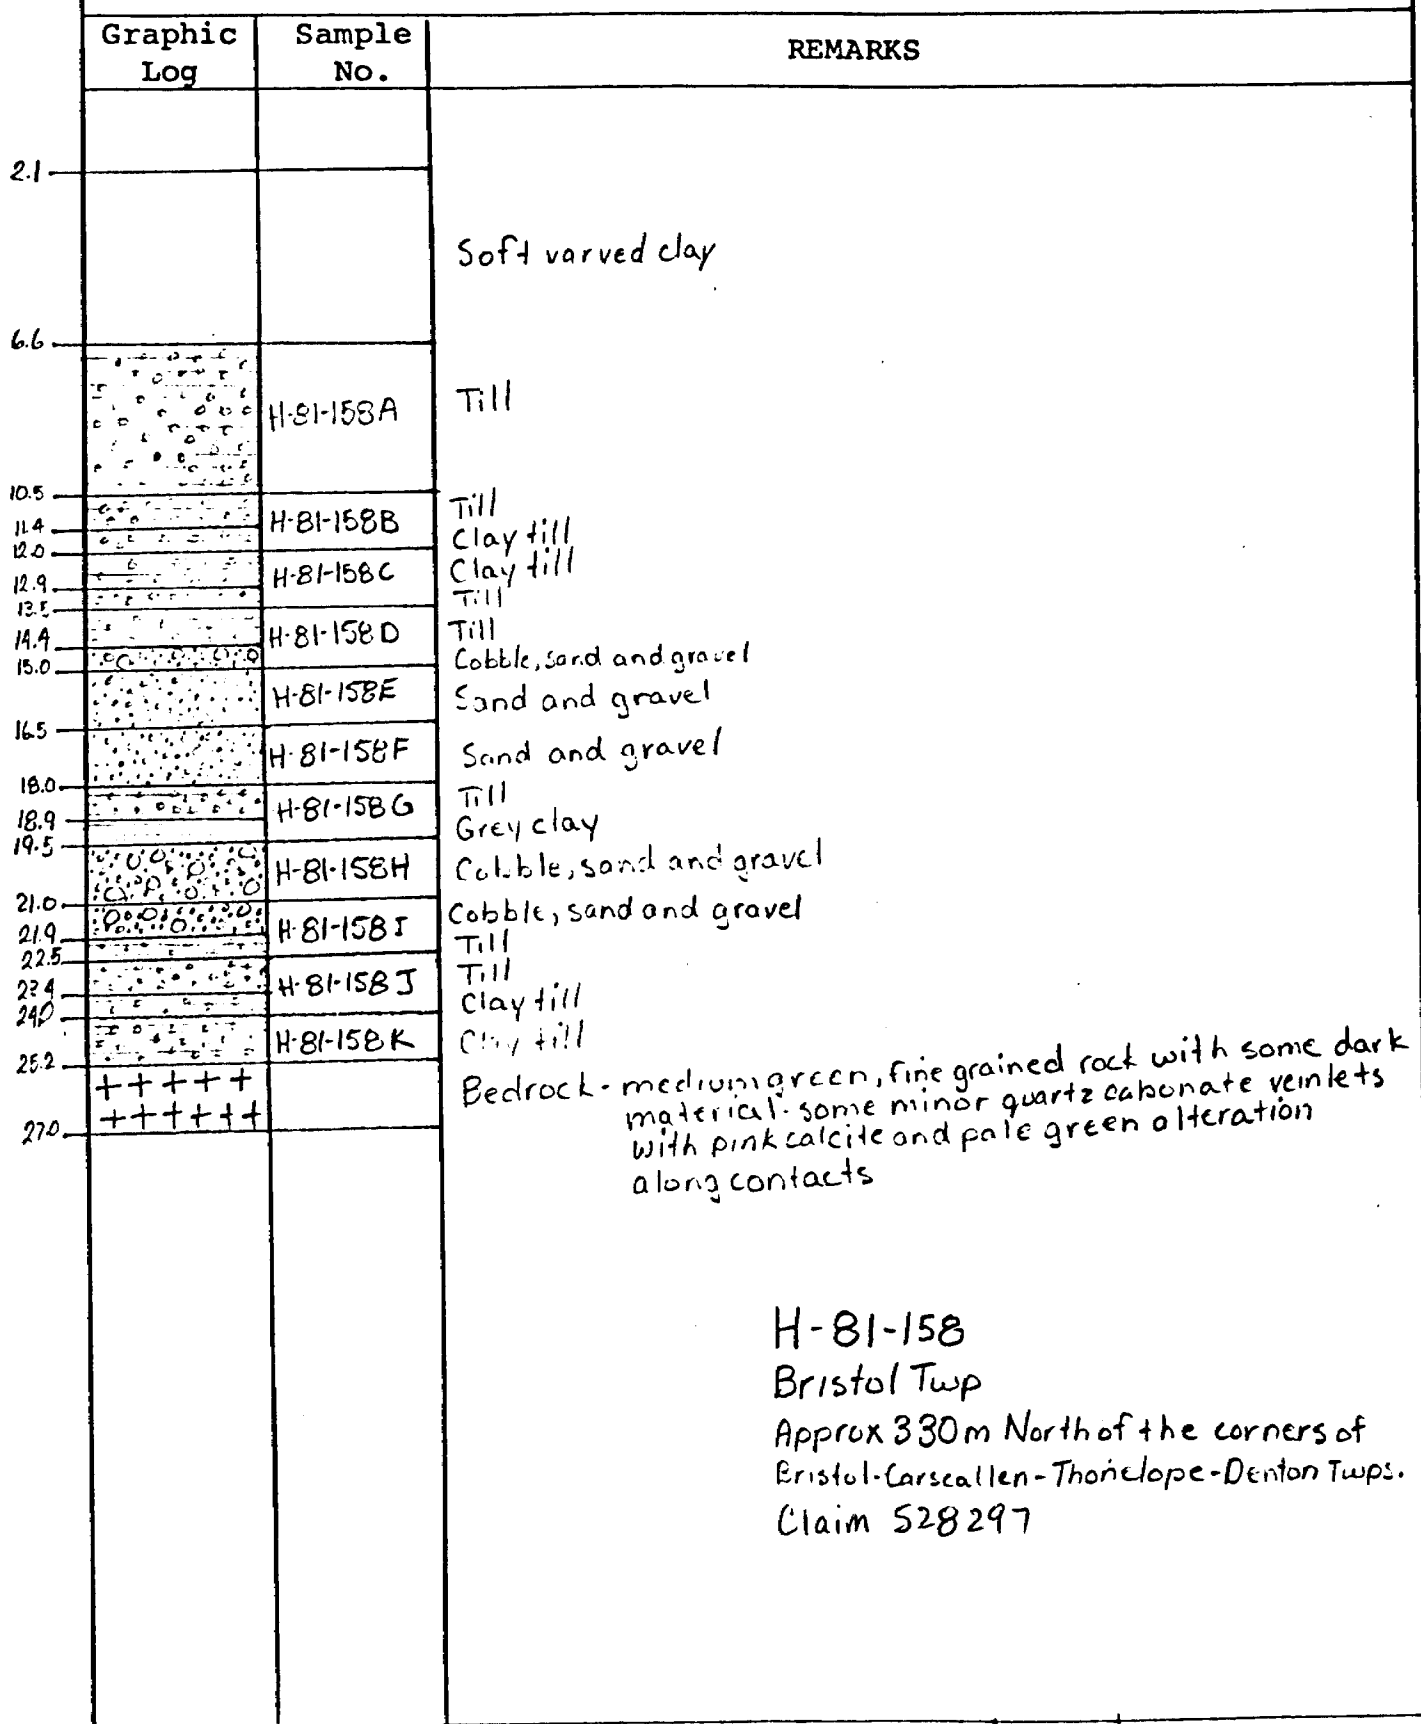 Graphic Log Sample No. REMARKS
2.1
Soft varved clay
6.6
H-81-158A Till
10.5
H-81-158B Till
11.4
Clay till
12.0
H-81-158C Clay till
12.9
Till
13.5
H-81-158D Till
14.4
Cobble, sand and gravel
15.0
H-81-158E Sand and gravel
16.5
H-81-158F Sand and gravel
18.0
H-81-158G Till
18.9
Grey clay
19.5
H-81-158H Cobble, sand and gravel
21.0
H-81-158I Cobble, sand and gravel
21.9
Till
22.5
H-81-158J Till
23.4
Clay till
24.0
H-81-158K Clay till
25.2
Bedrock - medium green, fine grained rock with some dark
material - some minor quartz cabonate veinlets
with pink calcite and pale green alteration
along contacts
27.0
H-81-158
Bristol Twp
Approx 330m North of the corners of
Bristol-Carscallen-Thornelope-Denton Twps.
Claim 528297